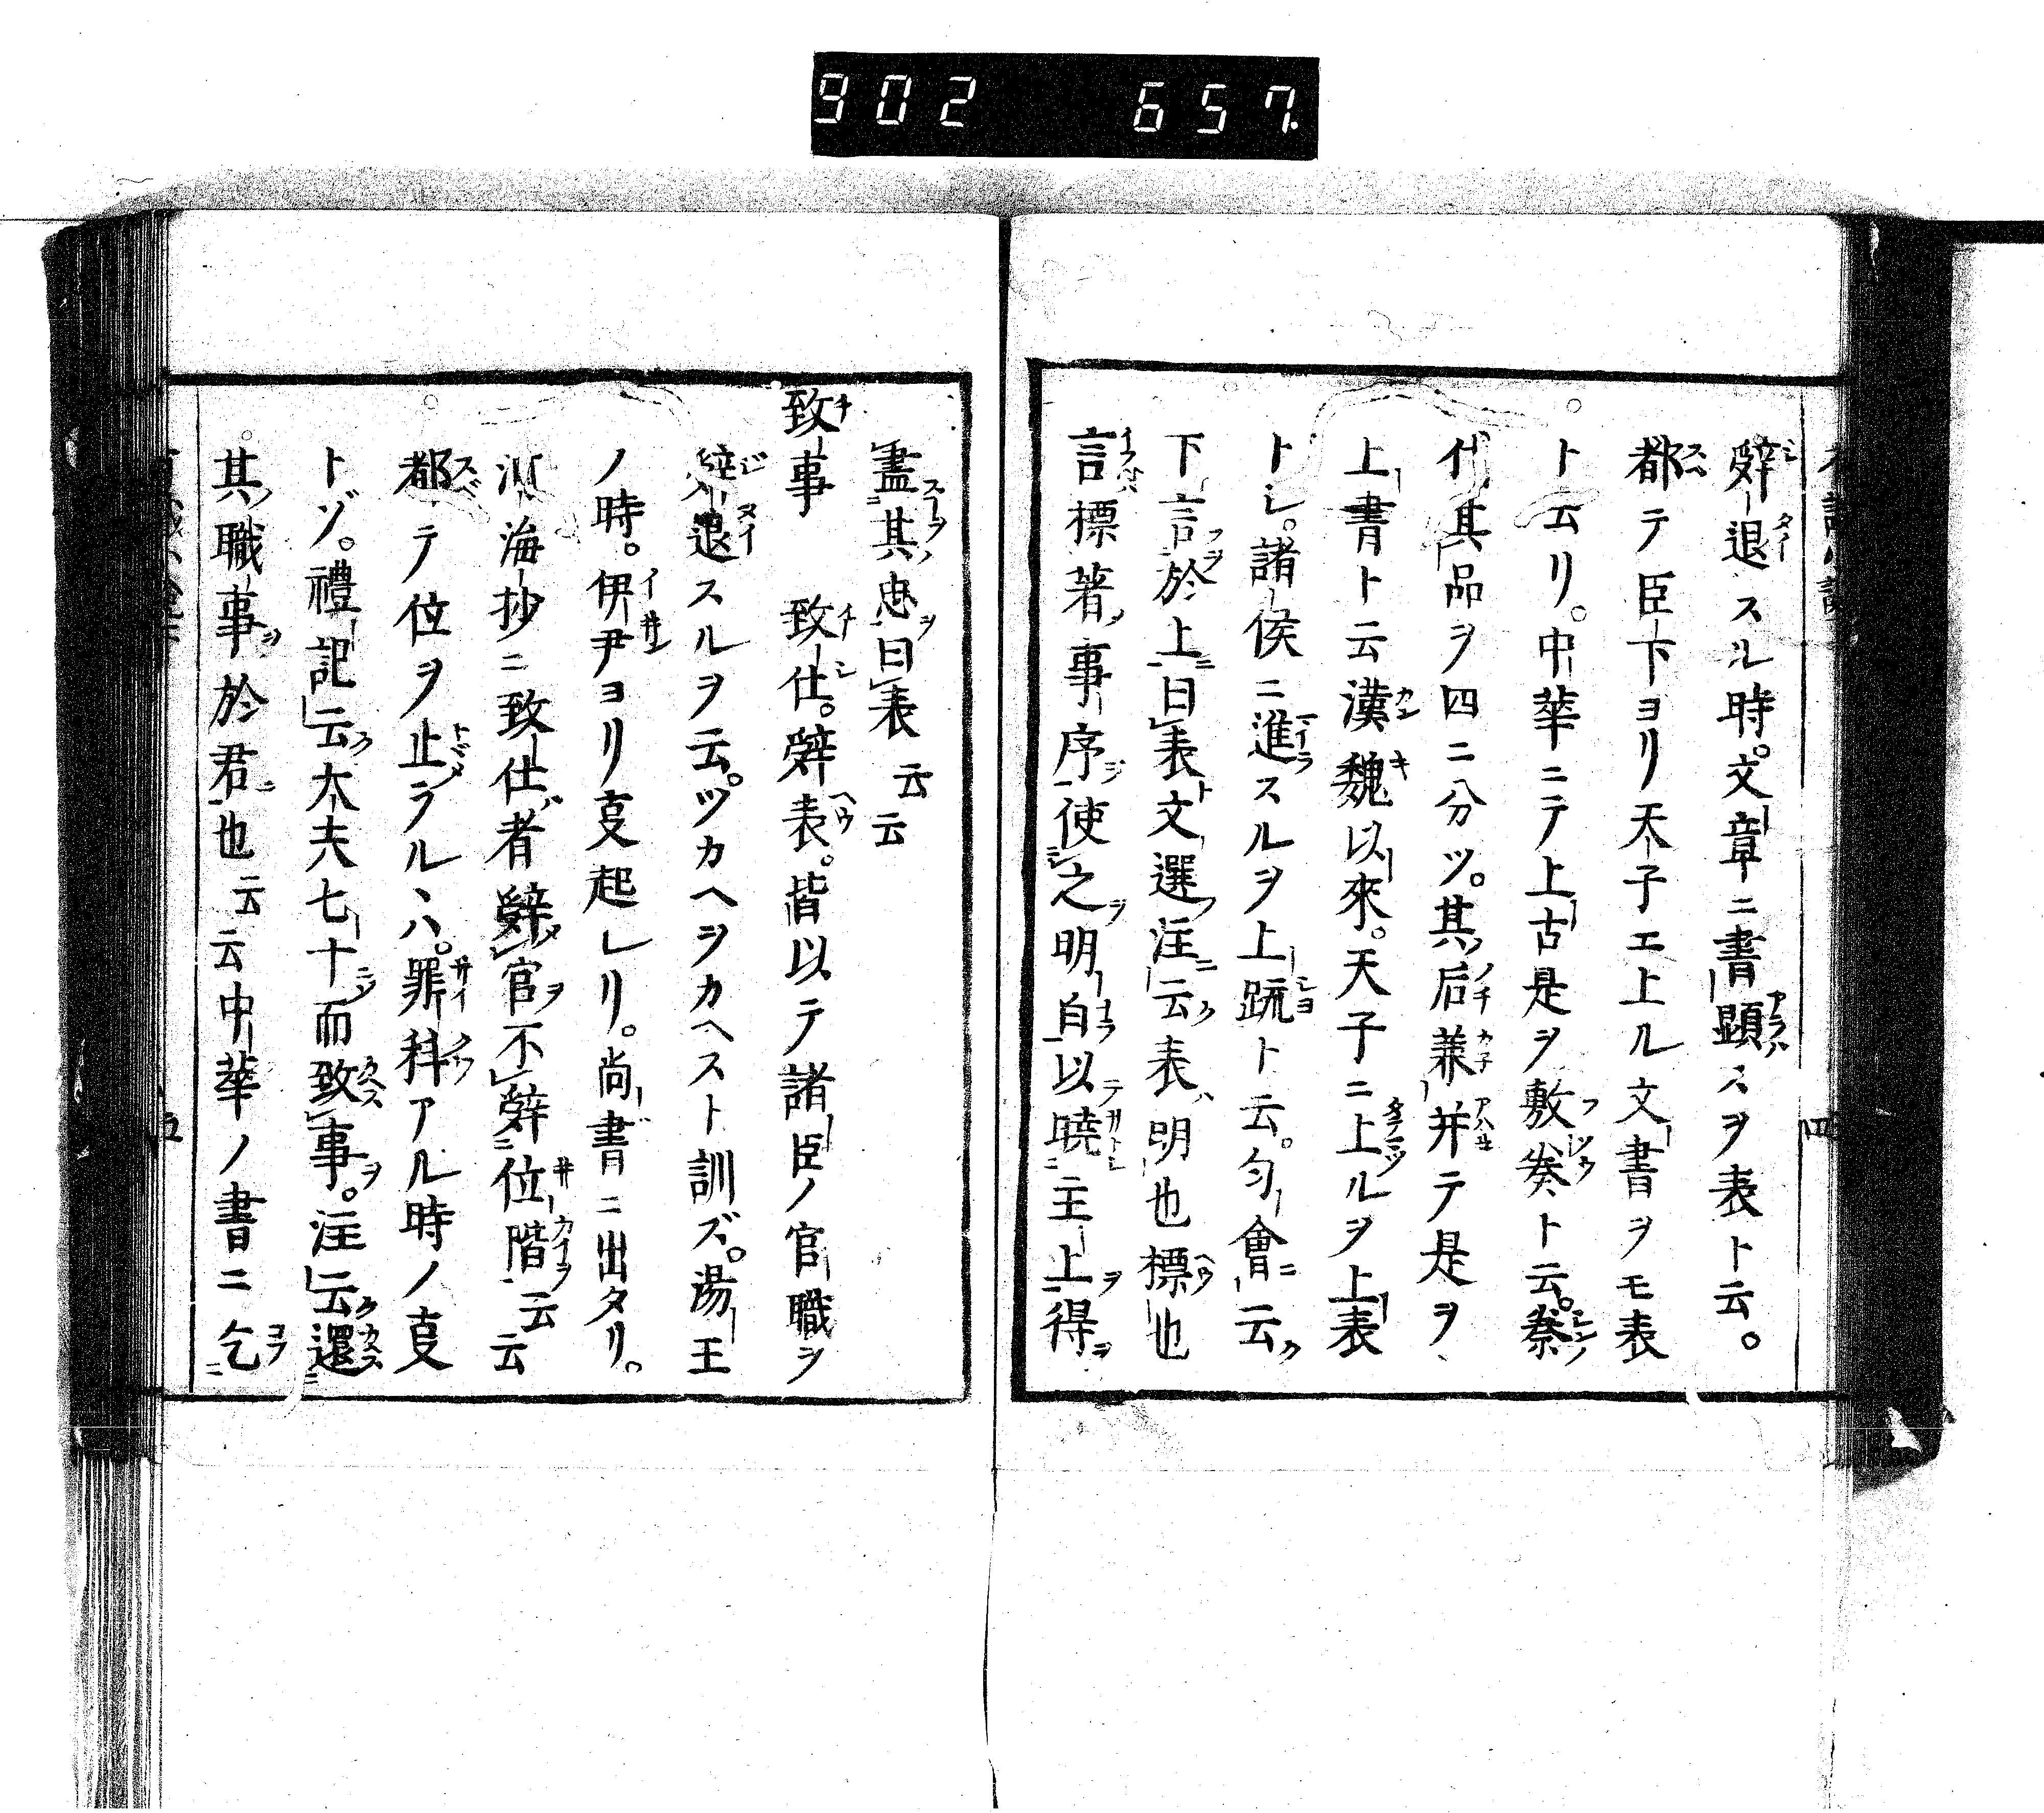 902 657
辞退スル時。文章ニ書顕スヲ表ト云。
都テ臣下ヨリ天子エ上ル文書ヲモ表
ト云リ。中華ニテ上古是ヲ敷奏ト云。秦
代其品ヲ四ニ分ツ。其后兼并テ是ヲ
上書ト云漢魏以來。天子ニ上ルヲ上表
トシ。諸侯ニ進スルヲ上疏ト云。匀會云
下言於上曰表文選注云表明也標也
言標著事序使之明白以暁主上得
盡其忠曰表云云
致事 致仕。辞表。皆以テ諸臣ノ官職ヲ
辞退スルヲ云。ツカヘヲカヘスト訓ズ。湯王
ノ時。伊尹ヨリ叓起レリ。尚書ニ出タリ。
河海抄ニ致仕者辞官不辞位階云云
都テ位ヲ止ラルヽハ。罪科アル時ノ叓
トゾ。禮記云大夫七十而致事。注云還
其職事於君也云云中華ノ書ニ乞